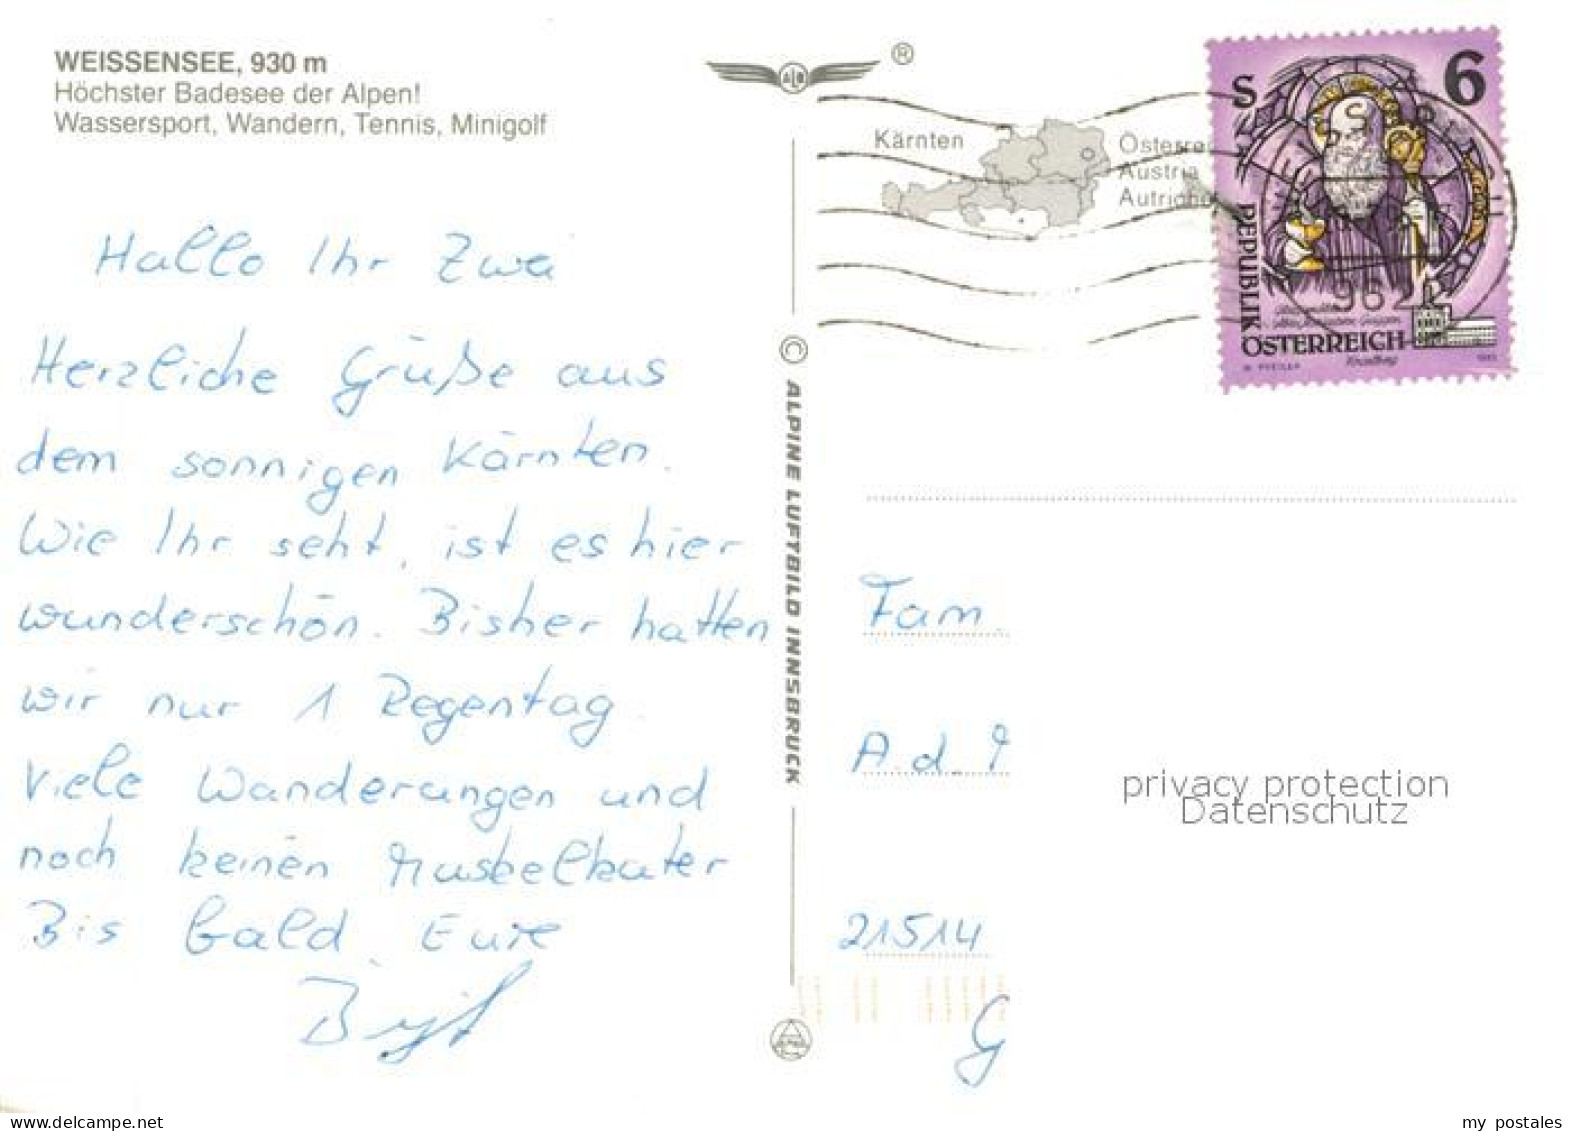 WEISSENSEE, 930 m
Höchster Badesee der Alpen!
Wassersport, Wandern, Tennis, Minigolf
Hallo Ihr Zwei
Herzliche Grüße aus
dem sonnigen Kärnten.
Wie Ihr seht, ist es hier
wunderschön. Bisher hatten
wir nur 1 Regentag.
Viele Wanderungen und
noch keinen Muskelkater
Bis bald. Eure
Birgit
®
© ALPINE LUFTBILD INNSBRUCK
Kärnten
Österrei
Austria
Autriche
S 6
REPUBLIK
ÖSTERREICH
9622
Fam.
A. d.
21514
G
privacy protection
Datenschutz
www.delcampe.net
my_postales